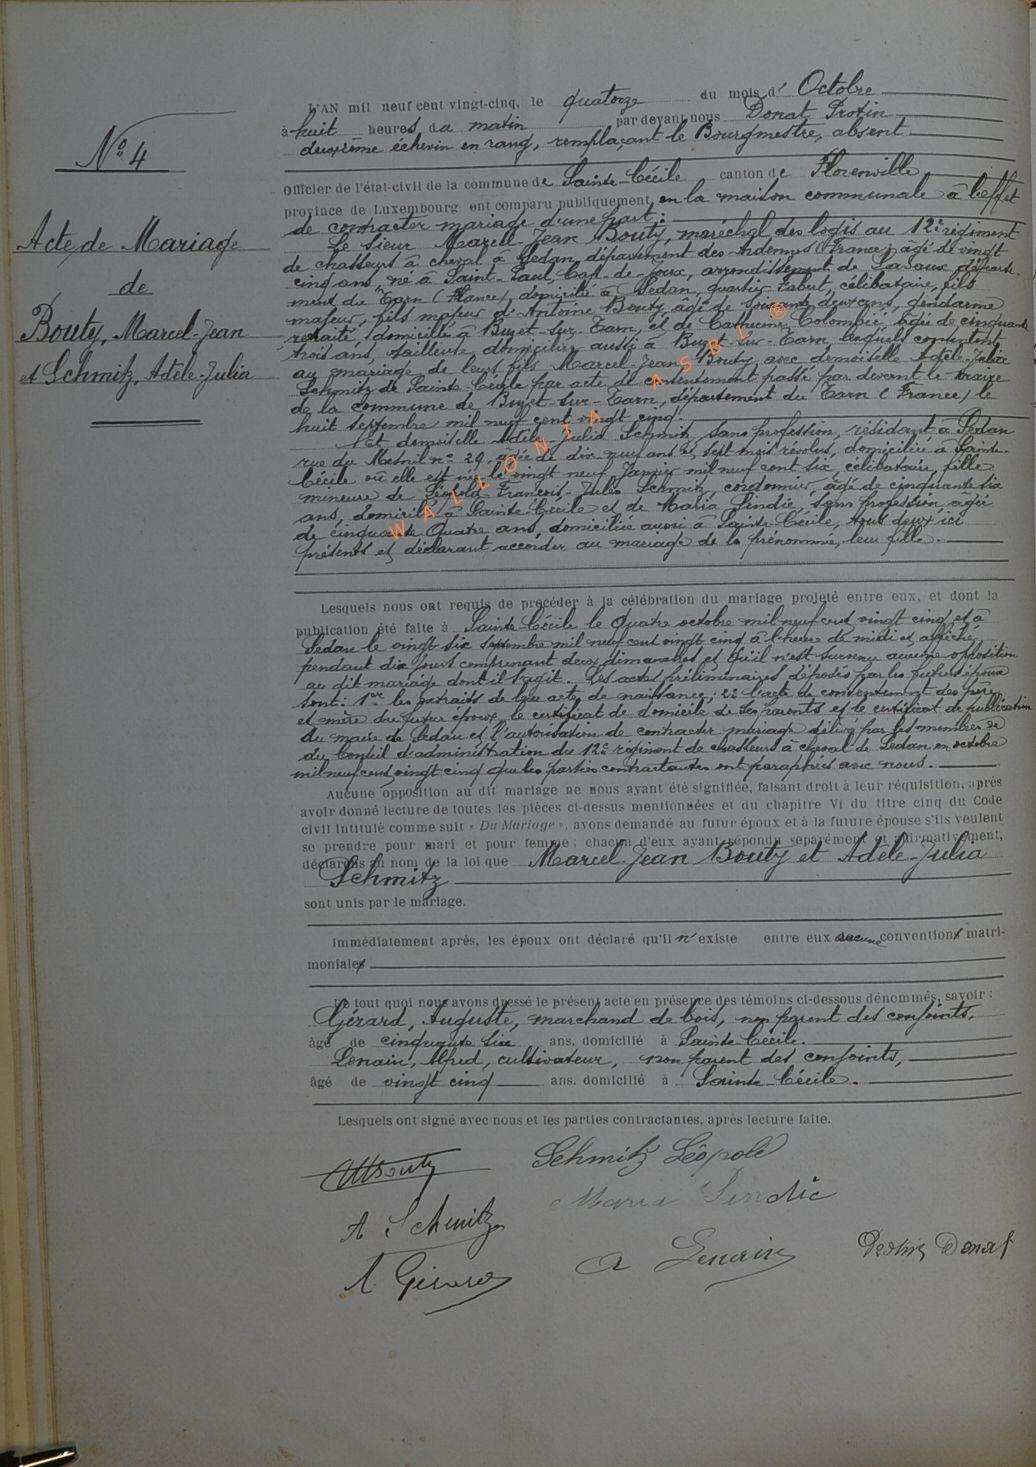 N° 4
Acte de Mariage
de
Bouty, Marcel-Jean
et Schmitz, Adèle-Julia
L'AN mil neuf cent vingt-cinq, le quatorze du mois d' Octobre
à huit heures du matin par devant nous Donat Protin
deuxième échevin en rang, remplaçant le Bourgmestre, absent
Officier de l'état-civil de la commune de Sainte-Cécile canton de Florenville
province de Luxembourg ont comparu publiquement en la maison communale à l'effet
de contracter mariage d'une part:
Le sieur Marcel Jean Bouty, maréchal des logis au 12e régiment
de chasseurs à cheval à Sedan, département des Ardennes (France) âgé de vingt
cinq ans, né à Saint-Paul, Cap-de-Joux, arrondissement de Lavaur, départe-
ment du Tarn (France), domicilié à Sedan, quartier Fabert, célibataire, fils
majeur, fils majeur d'Antoine Bouty, âgé de soixante deux ans, gendarme
retraité, domicilié à Buzet-sur-Tarn, et de Catherine Colombié, âgée de cinquante
trois ans, tailleuse, domiciliée aussi à Buzet-sur-Tarn, lesquels consentent
au mariage de leur fils Marcel-Jean Bouty avec demoiselle Adèle-Julia
Schmitz de Sainte Cécile par acte de consentement passé par devant le maire
de la commune de Buzet-sur-Tarn, département du Tarn (France) le
huit septembre mil neuf cent vingt cinq.
Et demoiselle Adèle-Julia Schmitz, sans profession, résidant à Sedan
rue du Mesnil n° 29, âgée de dix-neuf ans et sept mois révolus, domiciliée à Sainte-
Cécile où elle est née le vingt neuf Janvier mil neuf cent six, célibataire, fille
mineure de Léopold-François-Jules Schmitz, cordonnier, âgé de cinquante six
ans, domicilié à Sainte-Cécile et de Maria Sindic, sans profession âgée
de cinquante quatre ans, domiciliée aussi à Sainte-Cécile, tous deux ici
présents et déclarant accorder au mariage de la prénommée, leur fille.
Lesquels nous ont requis de precéder à la célébration du mariage projeté entre eux, et dont la
publication été faite à Sainte-Cécile le quatre octobre mil neuf cent vingt cinq et à
Sedan le vingt six septembre mil neuf cent vingt cinq à l'heure de midi et affiché
pendant dix jours comprenant deux dimanches et qu'il n'est survenu aucune opposition
au dit mariage dont il s'agit. Les actes préliminaires déposés par les futurs époux
sont: 1° les extraits de leur acte de naissance; 2° l'acte de consentement des père
et mère du futur époux, le certificat de domicile de ses parents et le certificat de publication
du maire de Sedan et l'autorisation de contracter mariage délivré par les membres
du Conseil d'administration du 12e régiment de chasseurs à cheval de Sedan en octobre
mil neuf cent vingt cinq que les parties contractantes ont paraphées avec nous.
Aucune opposition au dit mariage ne nous ayant été signifiée, faisant droit à leur réquisition, après
avoir donné lecture de toutes les pièces ci-dessus mentionnées et du chapitre VI du titre cinq du Code
civil intitulé comme suit « Du Mariage », avons demandé au futur époux et à la future épouse s'ils veulent
se prendre pour mari et pour femme; chacun d'eux ayant répondu separément et affirmativement,
déclarons au nom de la loi que Marcel-Jean Bouty et Adèle-Julia
Schmitz
sont unis par le mariage.
Immédiatement après, les époux ont déclaré qu'il n'existe entre eux aucune conventions matri-
moniales
De tout quoi nous avons dressé le présent acte en présence des témoins ci-dessous dénommés, savoir:
Gérard, Auguste, marchand de bois, non parent des conjoints,
âgé de cinquante six ans, domicilié à Sainte Cécile.
Lenain, Alfred, cultivateur, non parent des conjoints,
âgé de vingt cinq ans. domicilié à Sainte-Cécile.
Lesquels ont signé avec nous et les parties contractantes, après lecture faite.
Schmitz Léopold
Maria Sindic
A Schmitz
A Lenain
Protin Donat
A. Gérard
WALLONIA ASBL ®